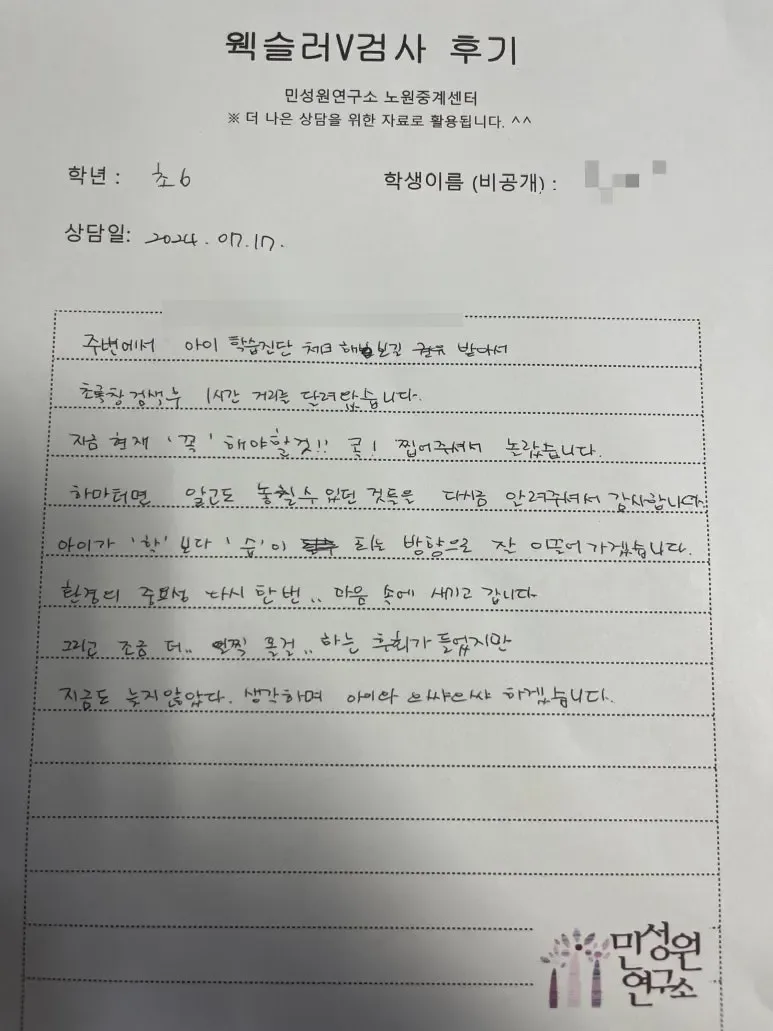 웩슬러V검사 후기
민성원연구소 노원중계센터
※ 더 나은 상담을 위한 자료로 활용됩니다. ^^
학년 : 초6
학생이름 (비공개) :
상담일: 2024. 07. 17.
주변에서 아이 학습진단 체크 해보길 권유 받아서
초록창 검색후 1시간 거리를 달려왔습니다.
지금 현재 '꼭' 해야할것!! 콕! 찝어주셔서 놀랐습니다.
하마터면 알고도 놓칠수 있던 것들을 다시금 알려주셔서 감사합니다
아이가 '학' 보다 '습'이 되는 방향으로 잘 이끌어가겠습니다.
환경의 중요성 다시 한번.. 마음 속에 새기고 갑니다
그리고 조금 더.. 일찍 올걸.. 하는 후회가 들었지만
지금도 늦지않았다. 생각하며 아이와 으쌰으쌰 하겠습니다.
민성원
연구소